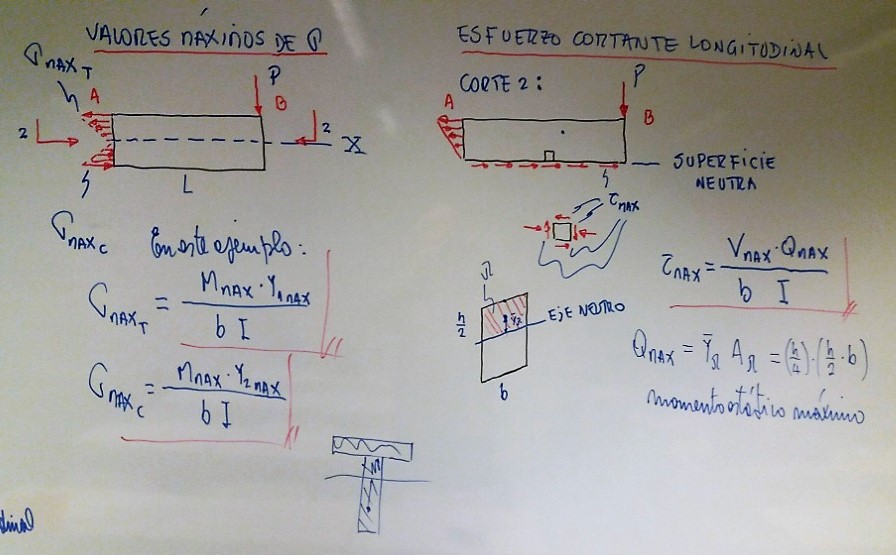 VALORES MÁXIMOS DE σ
σ MAX T
A
P
B
2
2
X
L
σ MAX C
En este ejemplo:
σ MAX T = M MAX · Y1 MAX / b I
σ MAX C = M MAX · Y2 MAX / b I
ESFUERZO CORTANTE LONGITUDINAL
CORTE 2:
P
A
B
SUPERFICIE
NEUTRA
τ MAX
Ω
h/2
EJE NEUTRO
b
τ MAX = V MAX · Q MAX / b I
Q MAX = Ȳ Ω A Ω = (h/4) · (h/2 · b)
momento estático máximo
dinal